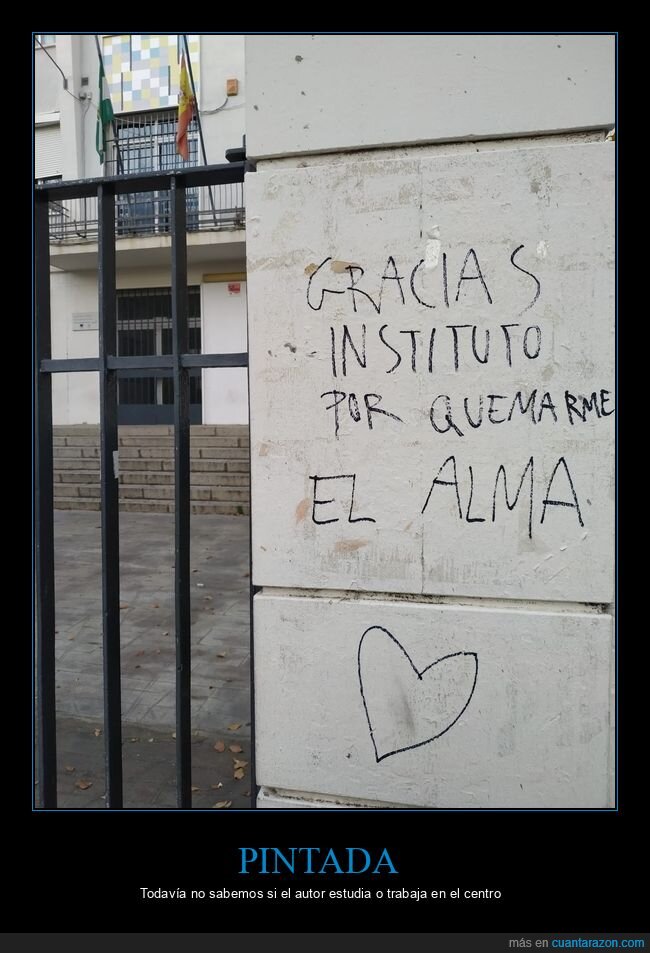 GRACIAS
INSTITUTO
POR QUEMARME
EL ALMA
PINTADA
Todavía no sabemos si el autor estudia o trabaja en el centro
más en cuantarazon.com